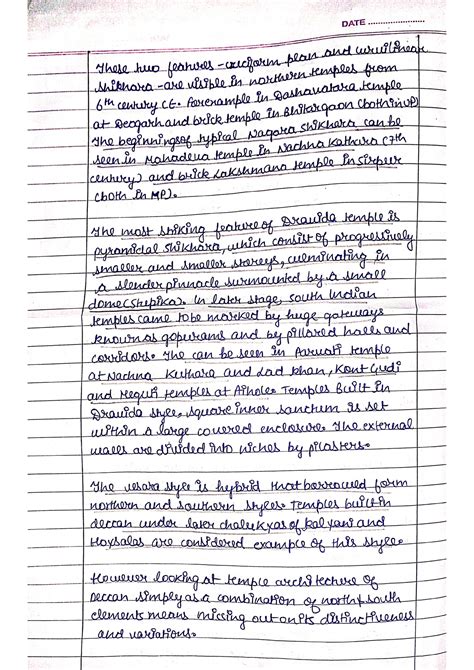 DATE
These two features - cruciform plan and curvilinear
shikhara - are visible in northern temples from
6th century CE. For example in Dashavatara temple
at Deogarh and brick temple in Bhitargaon (both in UP)
The beginnings of typical Nagara shikhara can be
seen in Mahadeva temple in Nachna Kuthara (7th
century) and brick Lakshmana temple in Sirpur
(both in MP).
The most striking feature of Dravida temple is
pyramidal shikhara, which consist of progressively
smaller and smaller storeys, culminating in
a slender pinnacle surmounted by a small
dome (stupika). In later stage, south Indian
temples came to be marked by huge gateways
known as gopurams and by pillared halls and
corridors. The can be seen in Parvati temple
at Nachna Kuthara and Lad Khan, Kont Gudi
and Meguti temples at Aihole. Temples Built in
Dravida style. square inner sanctum is set
within a large covered enclosure. The external
walls are divided into niches by pilasters.
The vesara style is hybrid that borrowed form
northern and southern styles. Temples built in
deccan under later chalukyas of kalyani and
Hoysalas are considered example of this style.
However looking at temple architecture of
deccan simply as a combination of north & south
elements means missing out on its distinctiveness
and variations.